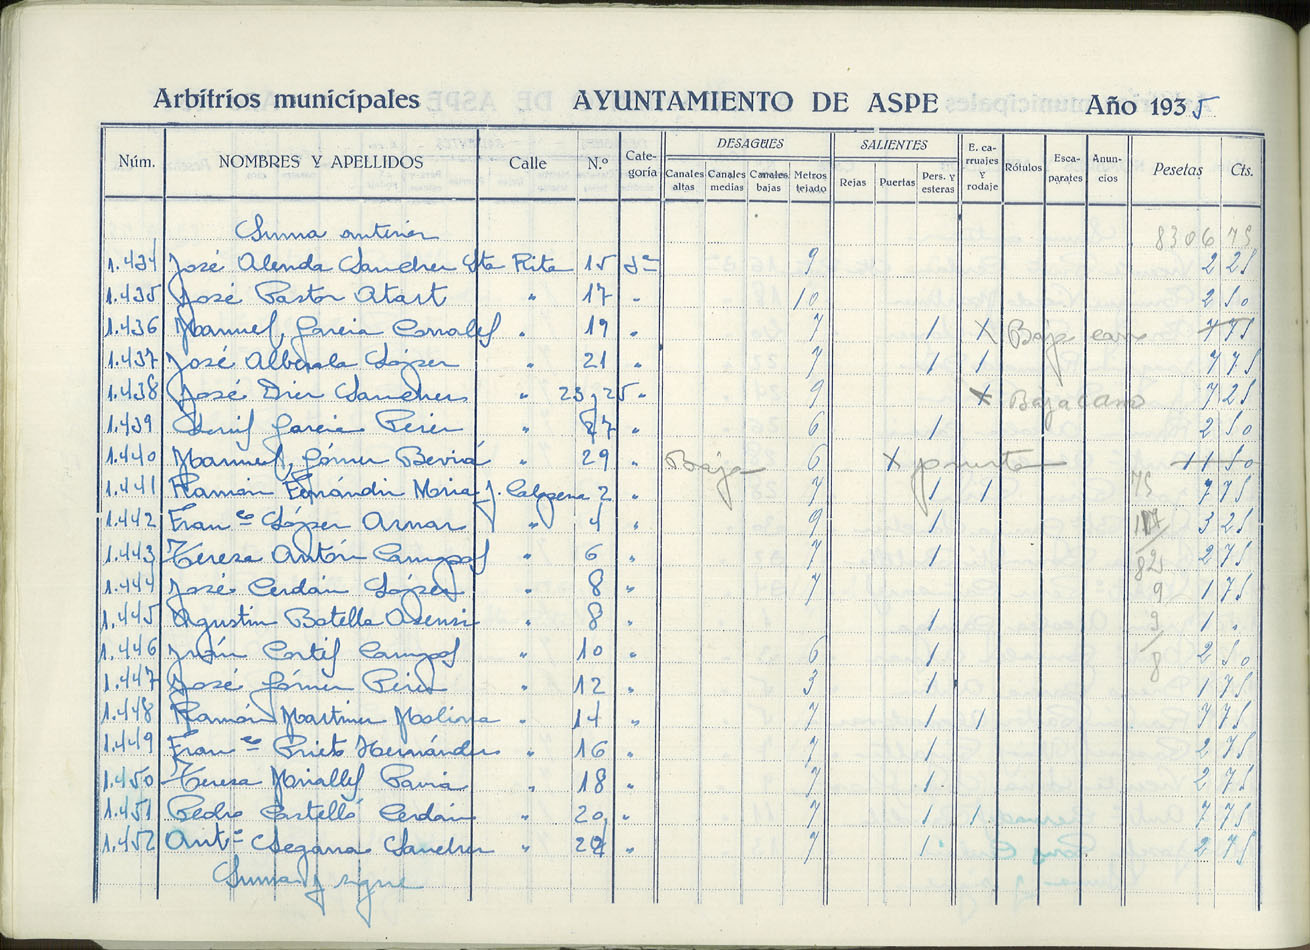 Arbitrios municipales AYUNTAMIENTO DE ASPE Año 1935
Núm. NOMBRES Y APELLIDOS Calle N.º Cate-goría DESAGÜES Canales altas Canales medias Canales bajas Metros tejado SALIENTES Rejas Puertas Pers. y esteras E. carruajes y rodaje Rótulos Esca-parates Anun-cios Pesetas Cts.
Suma anterior 8306 75
1.434 José Alenda Sanchez Sta Rita 15 3ª 9 2 25
1.435 José Pastor Atart " 17 " 10 2 50
1.436 Manuel Garcia Corralef " 19 " 7 1 X Baja carro 7 75
1.437 José Alberola López " 21 " 7 1 1 7 75
1.438 José Diez Sanchez " 23 y 25 " 9 X Baja Carro 7 25
1.439 Garcia Perez " 27 " 6 1 2 50
1.440 Manuel Gómez Beviá " 29 " Baja 6 X puerta 11 50
1.441 Ramón Fernández Mira J. Calagena 2 " 7 1 1 7 75
1.442 Fran co López Aznar " 4 " 9 1 3 25
1.443 Teresa Antón Campos " 6 " 7 1 2 75
1.444 José Cerdán López " 8 " 7 1 75
1.445 Agustin Botella Asensi " 8 " 1 1 "
1.446 Juán Cortés Campos " 10 " 6 1 2 50
1.447 José Gómez Pérez " 12 " 3 1 1 75
1.448 Ramón Martinez Molina " 14 " 7 1 1 7 75
1.449 Fran co Prieto Hernández " 16 " 7 1 2 75
1.450 Teresa Mirallef Pavia " 18 " 7 1 2 75
1.451 Pedro Castelló Cerdán " 20 " 7 1 1 7 75
1.452 Antº Segarra Sanchez " 22 " 7 1 2 75
Suma y sigue